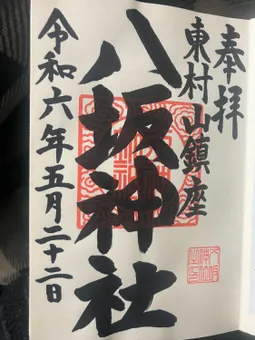 奉拝
東村山鎮座
八坂神社
令和六年五月二十二日